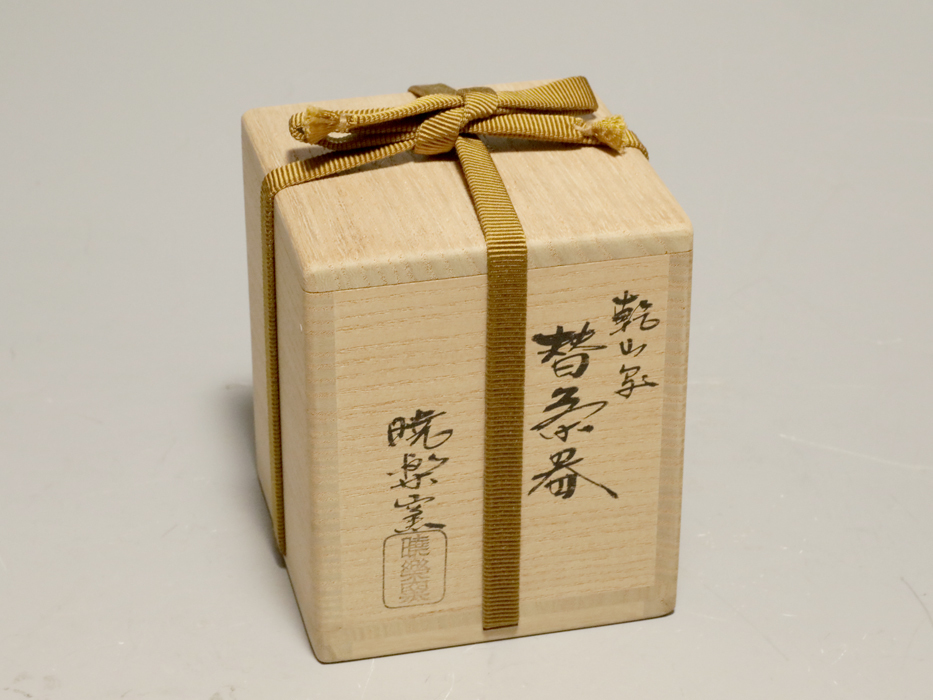 乾山写
替茶器
暁楽窯
暁楽窯